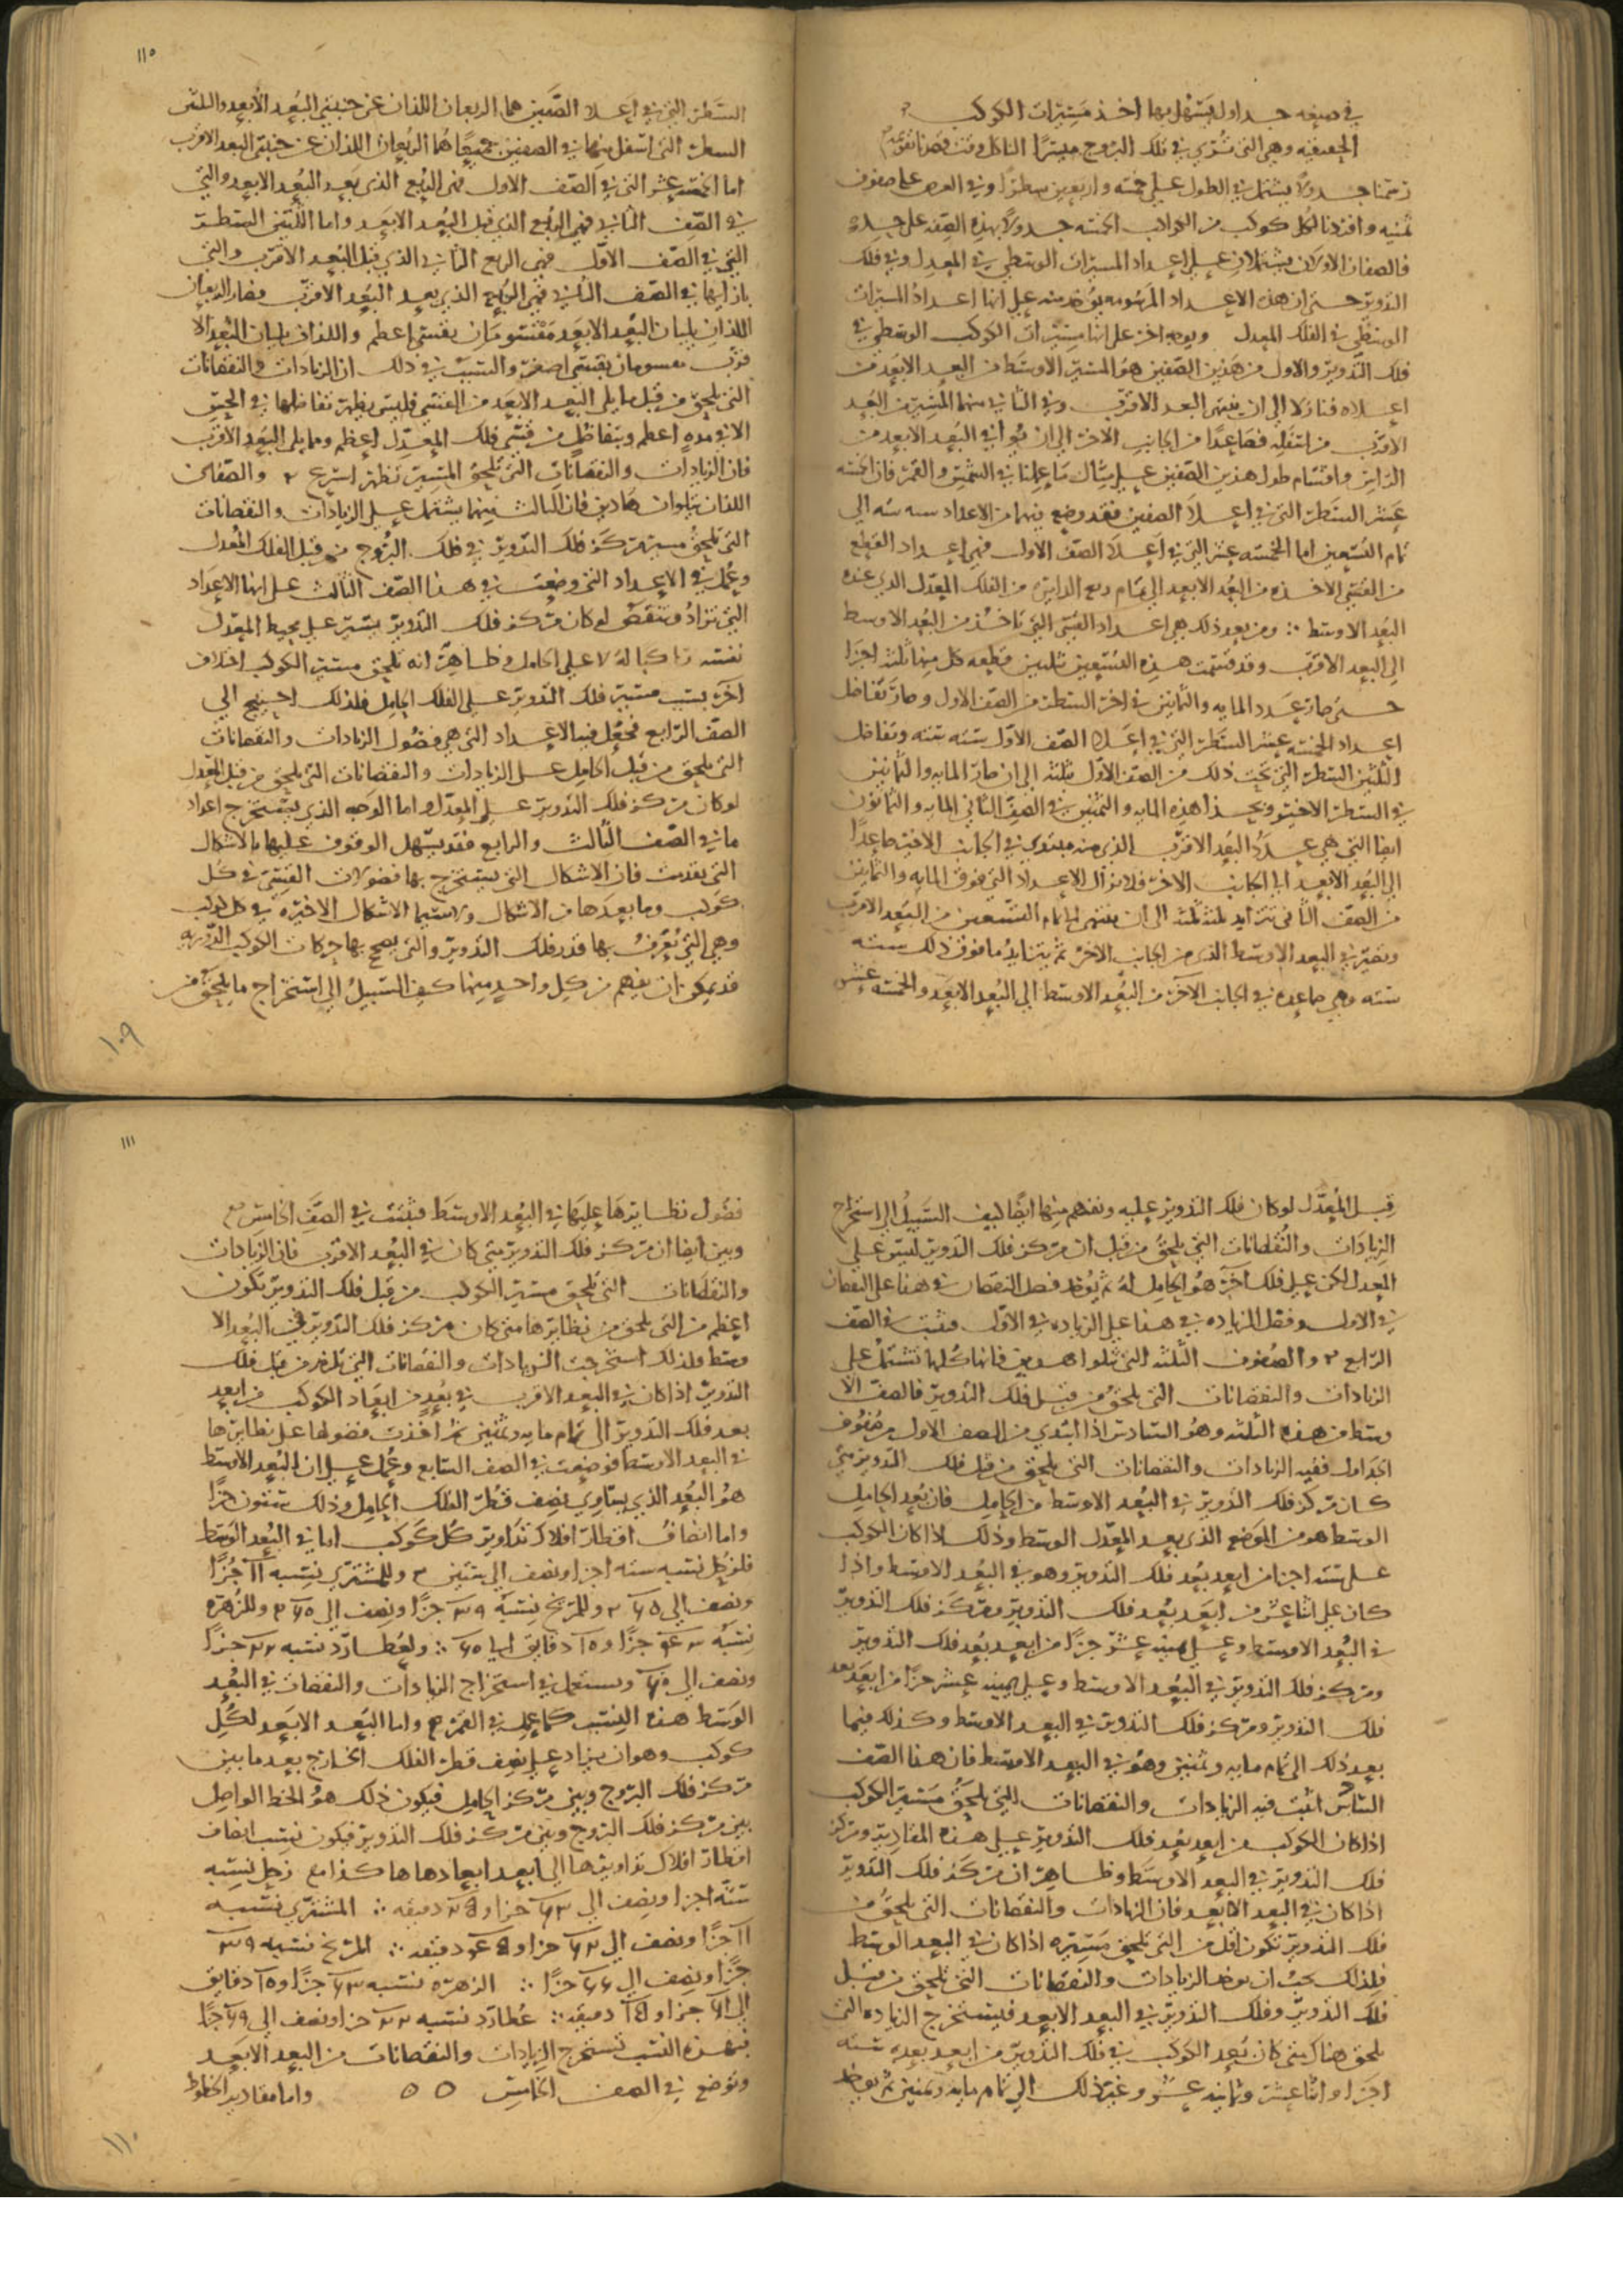 في صفه جداول يسهل بها اخذ مسيرات الكوكب
الحقيقيه وهي التي تُرى في فلك البروج
رسمنا جدولا يشتمل في الطول على خمسه واربعين سطرًا وفي العرض على صفوف
ثمنيه وافردنا لكل كوكب من الكواكب الخمسه جدولًا بهذه الصفه على حده
فالصفان الاولان يشتملان على اعداد المسيرات الوسطى في المعدل وفي فلك
التدوير حتى ان هذه الاعداد المرسومه يوخذ منه على انها اعداد المسيرات
الوسطى في الفلك المعدل ويوجه اخر على انها مسيرات الكوكب الوسطى في
فلك التدوير والاول من هذين الصفين هو المسير الاوسط من البعد الابعد من
اعلاه فنازلا الى ان ينتهي البعد الاقرب وفي الثاني منهما المسير من البعد
الاقرب من اسفله فصاعدًا من الجانب الاخر الى ان يوافي البعد الابعد من
الراس واقسام طول هذين الصفين على مثال ما عملنا في الشمس والقمر فان الخمسه
عشر السطر التي في اعلا الصفين فقد وضع فيهما من الاعداد سته سته الى
تمام التسعين اما الخمسه عشر التي في اعلا الصف الاول فهي اعداد القطع
من القسي الاخذه من البعد الابعد الى تمام ربع الدايره من الفلك المعدل الذي عنده
البعد الاوسط ∴ ومن بعد ذلك هي اعداد القسي التي تاخذ من البعد الاوسط
الى البعد الاقرب وقد قسمت هذه التسعين ثلثين قطعه كل منها ثلثه اجزا
حتى صار عدد المايه والثمانين في اخر السطر من الصف الاول وصار تفاضل
اعداد الخمسه عشر السطر التي في اعلا الصف الاول سته سته وتفاضل
الثلثين السطر التي تحت ذلك من الصف الاول ثلثه الى ان صار المايه والثمانين
في السطر الاخير وبحذا هذه المايه والثمنين في الصف الثاني المايه والثمانون
ايضا التي هي عدد البعد الاقرب الذي منه مبتدي في الجانب الاخر صاعدًا
الى البعد الابعد الى الجانب الاخر فلا تزال الاعداد التي فوق المايه والثمانين
من الصف الثاني تتزايد ثلثه ثلثه الى ان ينتهي الى تمام التسعين من البعد الاقرب
وتصير في البعد الاوسط الذي من الجانب الاخر ثم يتزايد ما فوق ذلك سته
سته وهي صاعده في الجانب الآخر من البعد الاوسط الى البعد الابعد والخمسه عشر
١١٥
السطر التي في اعلا الصفين هما الربعان اللذان عن جنبتي البعد الابعد والثلثين
السطر التي اسفل منها في الصفين جميعًا هما الربعان اللذان عن جنبتي البعد الاقرب
اما الخمسه عشر التي في الصف الاول فهي الربع الذي بعد البعد الابعد والتي
في الصف الثاني فهي الربع الذي قبل البعد الابعد واما الثلثين السطر
التي في الصف الاول فهي الربع الثاني الذي قبل البعد الاقرب والتي
بازايها في الصف الثاني فهي الربع الذي بعد البعد الاقرب فصار الربعان
اللذان يليان البعد الابعد مقسومان بقسي اعظم واللذان يليان البعد الا
قرب مقسومان بقسي اصغر والسبب في ذلك ان الزيادات والنقصانات
التي تلحق من قبل ما يلي البعد الابعد من القسي فليس يظهر تفاضلها في الحس
الا في مده اعظم وبتفاضل من قسي فلك المعدل اعظم وما يلي البعد الاقرب
فان الزيادات والنقصانات التي تلحق المسير تظهر اسرع والصفان
اللذان يتلوان هاذين فان الثالث منهما يشتمل على الزيادات والنقصانات
التي تلحق مسير مركز فلك التدوير في فلك البروج من قبل الفلك المعدل
وعُمل في الاعداد التي وضعت في هذا الصف الثالث على انها الاعداد
التي تزاد وتنقص لو كان مركز فلك التدوير يسير على محيط المعدل
نفسه راكبا له لا على الحامل وظاهر انه تلحق مسير الكوكب اختلاف
آخر بسبب مسير فلك التدوير على الفلك الحامل فلذلك احتيج الى
الصف الرابع فجعل فيه الاعداد التي هي فضول الزيادات والنقصانات
التي تلحق من قبل الحامل على الزيادات والنقصانات التي تلحق من قبل المعدل
لو كان مركز فلك التدوير على المعدل واما الوجه الذي يستخرج اعداد
ما في الصف الثالث والرابع فقد يسهل الوقوف عليها بالاشكال
التي تقدمت فان الاشكال التي يستخرج بها فضولات القسي في كل
كوكب وما بعدها من الاشكال ولاسيما الاشكال الاخيره في كل كوكب
وهي التي يُعرف بها قدر فلك التدوير والتي يصح بها حركات الكوكب
قد يمكن ان يفهم من كل واحد منها كيف السبيل الى استخراج ما يلحق من
١٠٩
قبل المعدل لو كان فلك التدوير عليه ونفهم منها ايضًا كيف السبيل الى استخراج
الزيادات والنقصانات التي تلحق من قبل ان مركز فلك التدوير ليس على
المعدل لكن على فلك آخر هو الحامل له ثم يوخذ فضل النقصان في هذا على النقصان
في الاول وفضل الزياده في هذا على الزياده في الاول فيثبت في الصف
الرابع والصفوف الثلثه التي تتلوا هذين فانها كلها تشتمل على
الزيادات والنقصانات التي تلحق من قبل فلك التدوير فالصف الا
وسط من هذه الثلثه وهو السادس اذا ابتدي من الصف الاول من صفوف
الجداول ففيه الزيادات والنقصانات التي تلحق من قبل فلك التدوير متى
كان مركز فلك التدوير في البعد الاوسط من الحامل فان بعد الحامل
الوسط هو من الموضع الذي بعد المعدل الوسط وذلك اذا كان الكوكب
على سته اجزا من ابعد بعد فلك التدوير وهو في البعد الاوسط واذا
كان على اثنا عشر من ابعد بعد فلك التدوير ومركز فلك التدوير
في البعد الاوسط وعلى ثمنيه عشر جزًا من ابعد بعد فلك التدوير
ومركز فلك التدوير في البعد الاوسط وعلى ثمنيه عشر جزًا من ابعد بعد
فلك التدوير ومركز فلك التدوير في البعد الاوسط وكذلك فيما
بعد ذلك الى تمام مايه وثمنين وهو في البعد الاوسط فان هذا الصف
السادس اثبت فيه الزيادات والنقصانات التي تلحق مسير الكوكب
اذا كان الكوكب من ابعد بعد فلك التدوير على هذه المقادير ومركز
فلك التدوير في البعد الاوسط وظاهر ان مركز فلك التدوير
اذا كان في البعد الابعد فان الزيادات والنقصانات التي تلحق من
فلك التدوير تكون اقل من التي تلحق مسيره اذا كان في البعد الوسط
فلذلك يجب ان يوخذ الزيادات والنقصانات التي تلحق من قبل
فلك التدوير وفلك التدوير في البعد الابعد فليستخرج الزياده التي
تلحق هناك متى كان بعد الكوكب في فلك التدوير من ابعد بعده سته
اجزا واثنا عشر وثمانيه عشر وغير ذلك الى تمام مايه وثمنين ثم يوخذ
١١١
فضول نظايرها عليها في البعد الاوسط فيثبت في الصف الخامس
وبين ايضا ان مركز فلك التدوير متى كان في البعد الاقرب فان الزيادات
والنقصانات التي تلحق مسير الكوكب من قبل فلك التدوير تكون
اعظم من التي تلحق من نظايرها متى كان مركز فلك التدوير في البعد الا
وسط ولذلك استخرجت الزيادات والنقصانات التي تلزم من قبل فلك
التدوير اذا كان في البعد الاقرب في بُعدٍ من ابعاد الكوكب من ابعد
بعد فلك التدوير الى تمام مايه وثمنين ثم اخذت فضولها على نظايرها
في البعد الاوسط فوضعت في الصف السابع وعُمل على ان البعد الاوسط
هو البعد الذي يساوي نصف قطر الفلك الحامل وذلك ستون جزًا
واما انصاف اقطار افلاك تداوير كل كوكب اما في البعد الوسط
فلزحل نسبه سته اجزا ونصف الى ستين وللمشتري نسبه جزًا
ونصف الى وللمريخ نسبه جزًا ونصف الى وللزهره
نسبه جزًا و دقايق الى ∴ ولعطارد نسبه جزًا
ونصف الى ونستعمل في استخراج الزيادات والنقصات في البعد
الوسط هذه النسب كما عمله في القمر واما البعد الابعد لكل
كوكب وهو ان يزاد على نصف قطر الفلك الخارج بعد ما بين
مركز فلك البروج وبين مركز الحامل فيكون ذلك هو الخط الواصل
بين مركز فلك البروج وبين مركز فلك التدوير فيكون نسب انصاف
اقطار افلاك تداويرها الى ابعد ابعادها هاكذا زحل نسبه
سته اجزا ونصف الى جزا و دقيقه ∴ المشتري نسبه
جزًا ونصف الى جزا و دقيقه ∴ المريخ نسبه
جزًا ونصف الى جزًا ∴ الزهره نسبه جزًا و دقايق
الى جزا و دقيقه ∴ عطارد نسبه جزا ونصف الى جزًا
فبهذه النسب تستخرج الزيادات والنقصانات من البعد الابعد
وتوضع في الصف الخامس ٥ ٥ واما مقادير الخطوط
١١٠